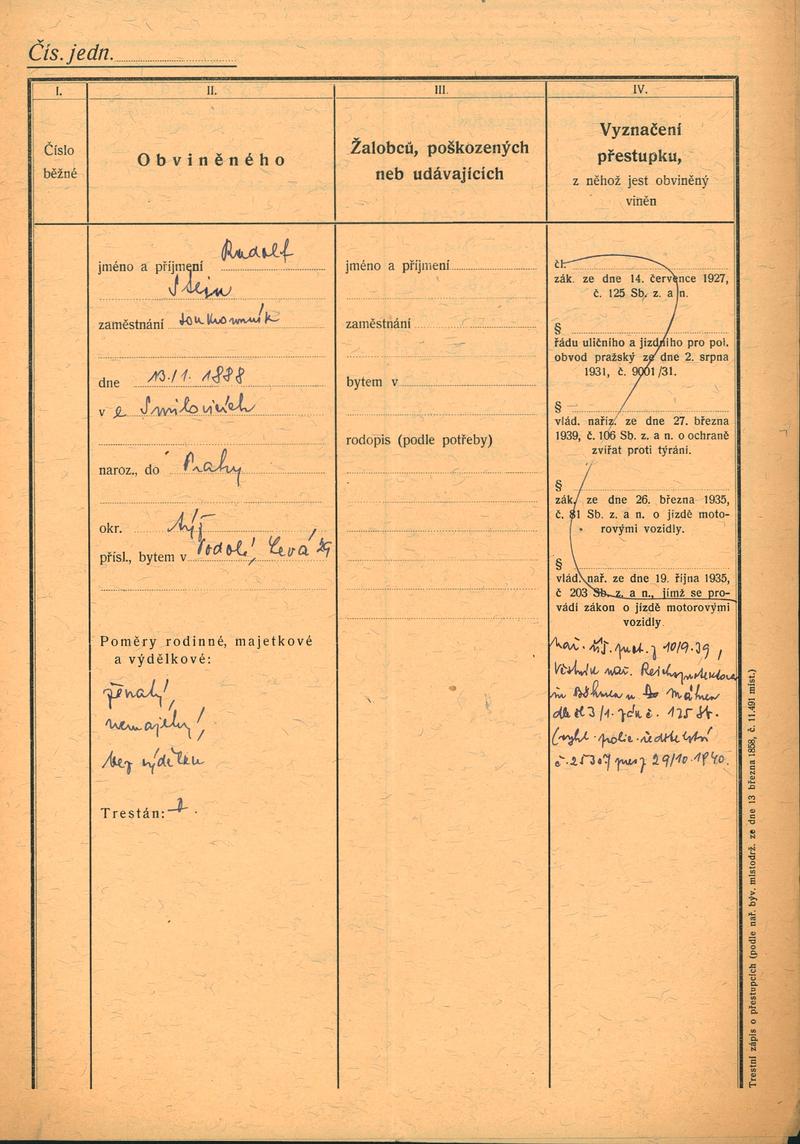 Čís. jedn.
I.
II.
III.
IV.
Číslo
běžné
Obviněného
Žalobců, poškozených
neb udávajících
Vyznačení
přestupku,
z něhož jest obviněný
viněn
jméno a příjmení Rudolf
Stein
zaměstnání soukromník
dne 13./1. 1888
v Smilovicích
naroz., do Prahy
okr. týž
přísl., bytem v Podolí, Levá 29
Poměry rodinné, majetkové
a výdělkové:
ženatý,
nemajetný,
bez výdělku
Trestán:
jméno a příjmení
zaměstnání
bytem v
rodopis (podle potřeby)
čl.
zák. ze dne 14. července 1927,
č. 125 Sb. z. a n.
§
řádu uličního a jízdního pro pol.
obvod pražský ze dne 2. srpna
1931, č. 9001/31.
§
vlád. naříz. ze dne 27. března
1939, č. 106 Sb. z. a n. o ochraně
zvířat proti týrání.
§
zák. ze dne 26. března 1935,
č. 81 Sb. z. a n. o jízdě moto-
rovými vozidly.
§
vlád. nař. ze dne 19. října 1935,
č 203 Sb. z. a n., jímž se pro-
vádí zákon o jízdě motorovými
vozidly.
nař. prot. z 10/9.39,
Věstník nař. Reichsprotektora
in Böhmen u Mähren
dle čl 3/1. zák č. 125 Sb.
(vyhl. polic. ředitelství
č. 25307 pres z 29/10.1940.
Trestní zápis o přestupcích (podle nař. býv. místodrž. ze dne 13 března 1858, č. 11.491 míst.)